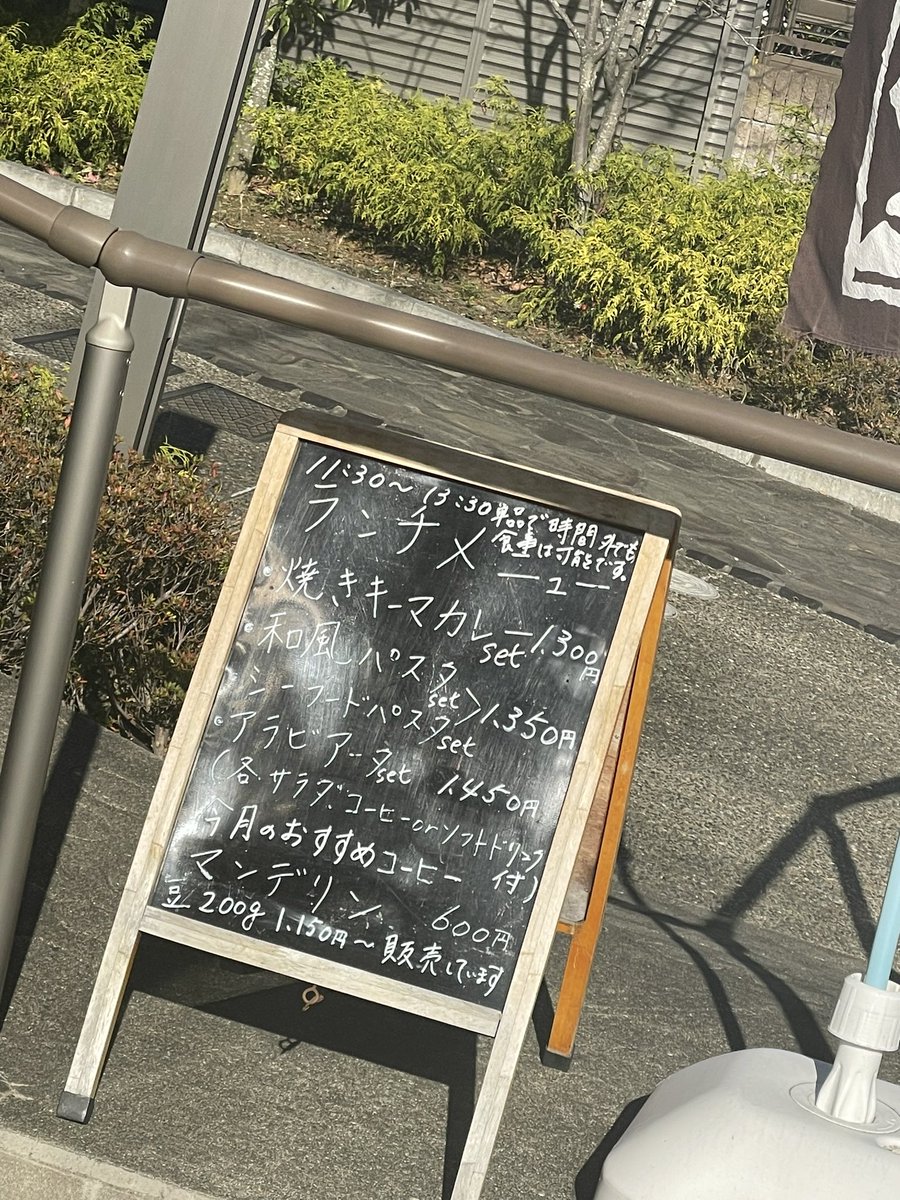 11:30〜13:30 単品で時間外でも
食事は可能です。
ランチメニュー
•焼きキーマカレーset 1.300円
•和風パスタset > 1.350円
シーフードパスタset
•アラビアータset 1.450円
(各サラダ、コーヒーorソフトドリンク付)
今月のおすすめコーヒー
マンデリン、600円
豆 200g 1.150円〜販売しています